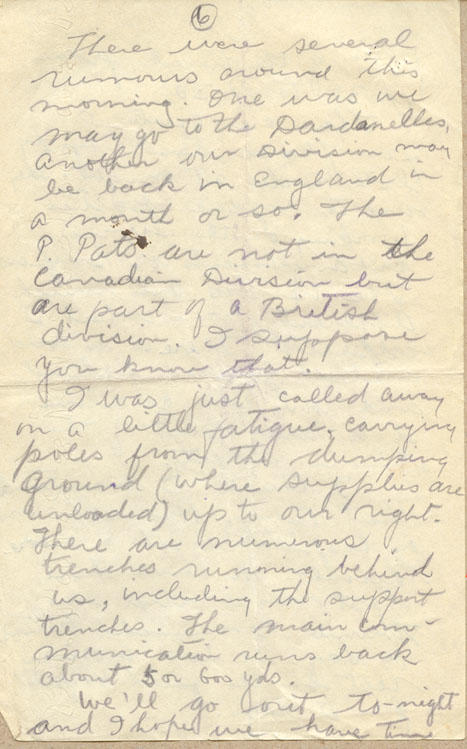 6
There were several
rumours around this
morning. One was we
may go to the Dardanelles,
another our Division may
be back in England in
a month or so. The
P. Pats are not in the
Canadian Division but
are part of a British
division. I suppose
you know that.
I was just called away
on a little fatigue, carrying
poles from the dumping
ground (where supplies are
unloaded) up to our right.
There are numerous
trenches running behind
us, including the support
trenches. The main com-
munication runs back
about 5 or 600 yds.
We'll go out to-night
and I hope we have time